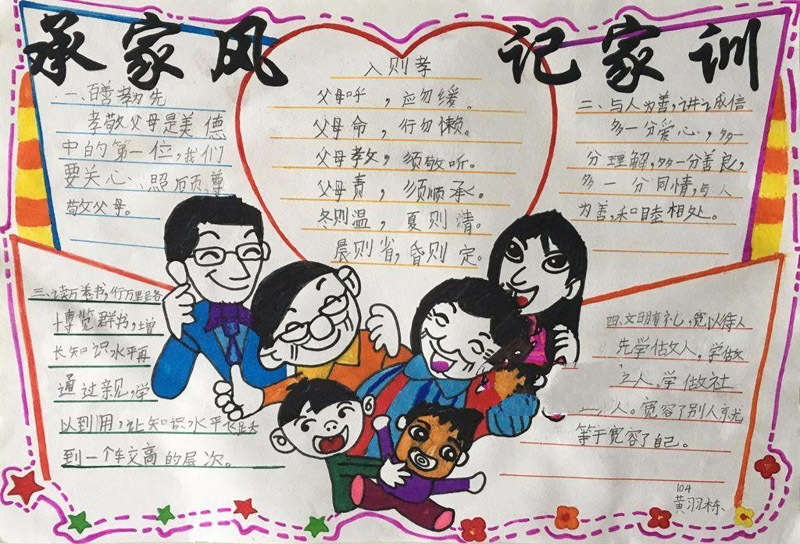 承家风 记家训
入则孝
父母呼，应勿缓。
父母命，行勿懒。
父母教，须敬听。
父母责，须顺承。
冬则温，夏则清。
晨则省，昏则定。
一、百善孝为先
孝敬父母是美德
中的第一位，我们
要关心、照顾、尊
敬父母。
二、与人为善，讲诚信
多一分爱心，多一
分理解，多一分善良，
多一分同情，与人
为善，和睦相处。
三、读万卷书，行万里路
博览群书，增
长知识水平再
通过亲见，学
以到用，让知识水平
到一个较高的层次。
四、文明有礼，宽以待人
先学做人，学做
人，学做社
人。宽容了别人就
等于宽容了自己。
104
黄羽栋